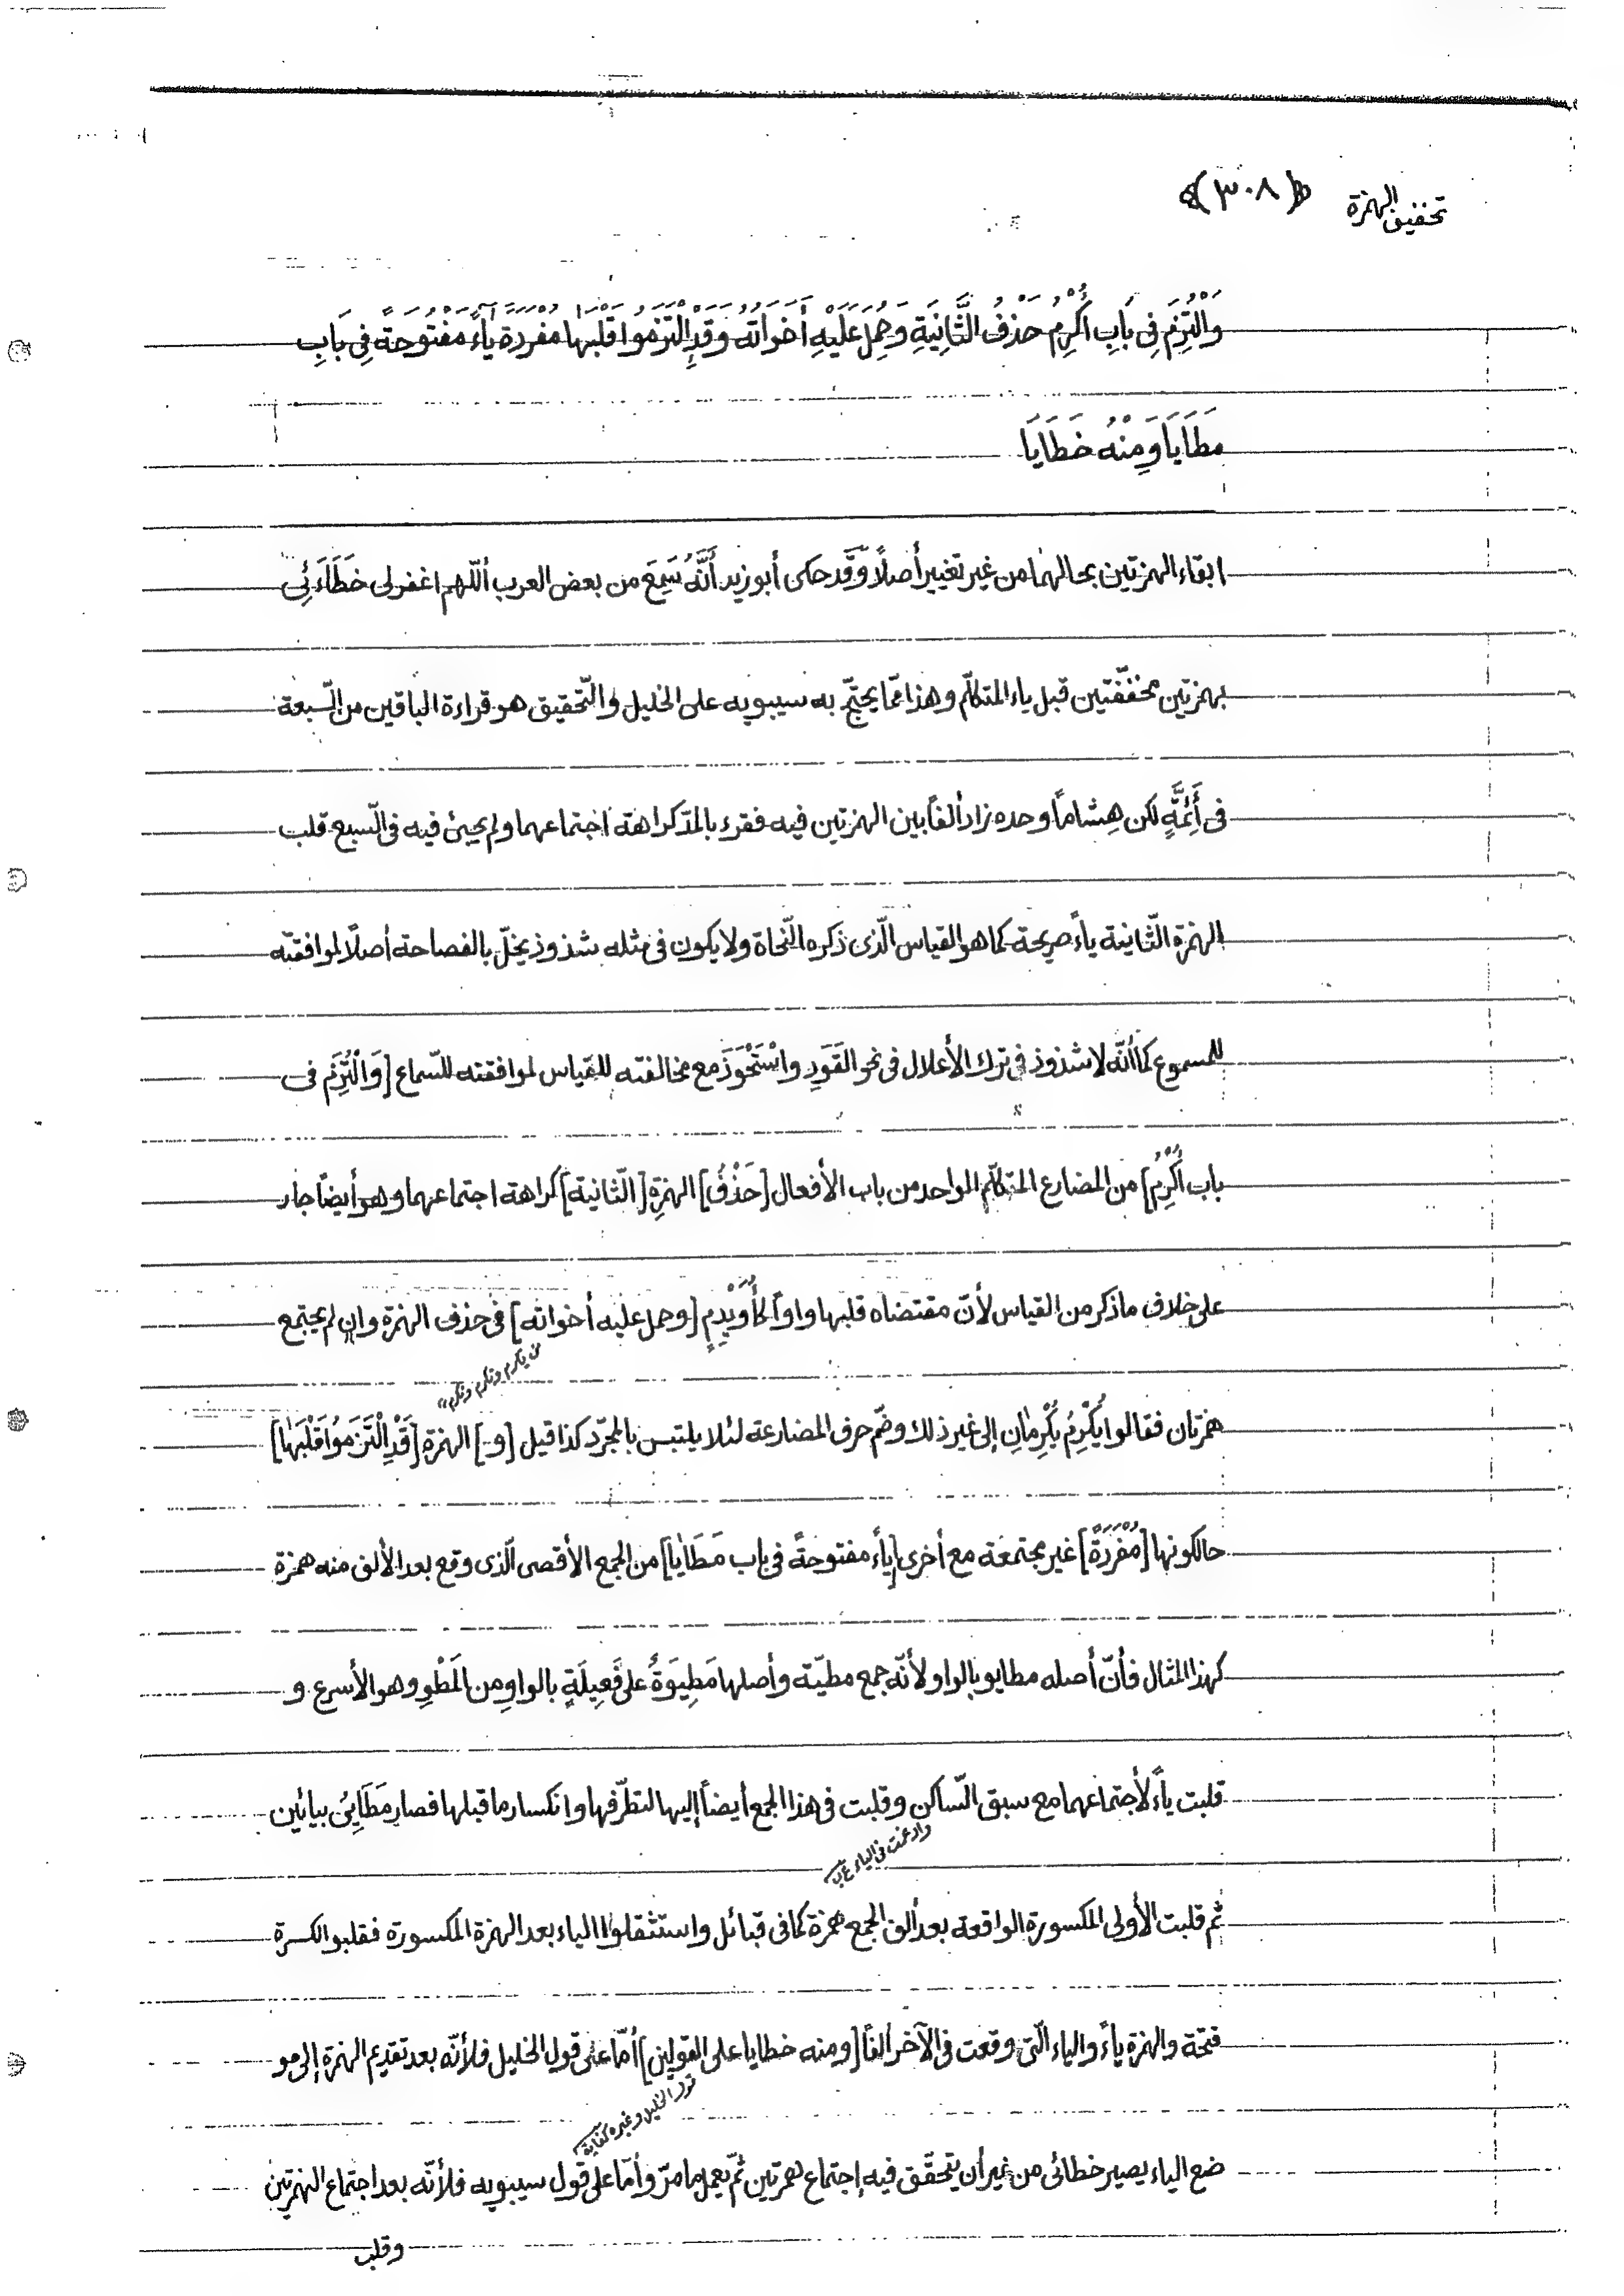 تخفيف الهمزة ﴿٣٠٨﴾
وَالْتُزِمَ فِى بَابِ أُكْرِمُ حَذْفُ الثَّانِيَةِ وَحُمِلَ عَلَيْهِ أَخَوَاتُهُ وَقَدِ الْتَزَمُوا قَلْبَهَا مُفْرَدَةً يَاءً مَفْتُوحَةً فِى بَابِ
مَطَايَا وَمِنْهُ خَطَايَا
ابقاء الهمزتين بحالهما من غير تغيير أصلاً وَقَد حكى أبو زيد أَنَّهُ سَمِعَ من بعض العرب اَللّهم اغفر لى خَطَاءَئِى
بهمزتين مخفّفتين قبل ياء المتكلّم وهذا ممّا يحتجّ به سيبويه على الخليل والتّحقيق هو قراءة الباقين من السّبعة
فى أَئِمَّةٍ لكن هِشاماً وحده زاد ألفاً بين الهمزتين فيه فقرء بالمدّ كراهة اجتماعهما ولم يجئ فيه فى السّبع قلب
الهمزة الثّانية ياءً صريحة كما هو القياس الّذى ذكره النّحاة ولا يكون فى مثله شذوذ يخلّ بالفصاحة أصلًا لموافقته
للمسموع كما أنّه لا شذوذ فى ترك الأعلال فى نحو القَوَدِ واسْتَحْوَذَ مع مخالفته للقياس لموافقته للسّماع [وَالْتُزِمَ فى
باب أُكْرِمُ] من المضارع المتكلّم الواحد من باب الأفعال [حَذْفُ] الهمزةِ [الثّانية] كراهة اجتماعهما وهو أيضاً جار
على خلاف ما ذكر من القياس لأنّ مقتضاه قلبها واواً كأُوَيْدِمٍ [وحمل عليه أخواته] فى حذف الهمزة وإن لم يجتمع
من يكرم وتكرم ونكرم
همزتان فقالوا يُكْرِمُ يُكْرِمٰانِ إلى غير ذلك وضمّ حرف المضارعة لئلا يلتبس بالمجرّد كذا قيل [و] الهمزة [قَدِ الْتَزَمُوا قَلْبَهٰا]
حالكونها [مُفْرَدَةً] غير مجتمعة مع أخرى [ياءً مفتوحةً فى باب مَطَايٰا] من الجمع الأقصى الّذى وقع بعد الألف منه همزة
كهذا المثال فأنّ أصله مطايو بالواو لأنّه جمع مطيّة وأصلها مَطِيوَةٌ على فَعِيلَةٍ بالواوِ من المَطْوِ وهو الأسرع و
قلبت ياءً لأجتماعهما مع سبق السّاكن وقلبت فى هذا الجمع أيضاً إليها لتطرّفها وانكسار ما قبلها فصار مَطَايِىُ بيائين
وادغمت فى الياء
ثم قلبت الأولى المكسورة الواقعة بعد ألف الجمع همزة كما فى قبائل واستثقلوا الياء بعد الهمزة المكسورة فقلبوا الكسرة
فتحة والهمزة ياءً والياء الّتى وقعت فى الآخر ألفًا [ومنه خطايا على القولين] أمّا على قول الخليل فلأنّه بعد تقديم الهمزة إلى مو
قول الخليل وغيره
ضع الياء يصير خطائى من غير أن يتحقّق فيه إجتماع همزتين ثمّ يعمل ما مرّ وأمّا على قول سيبويه فلأنّه بعد اجتماع الهمزتين
وقلب